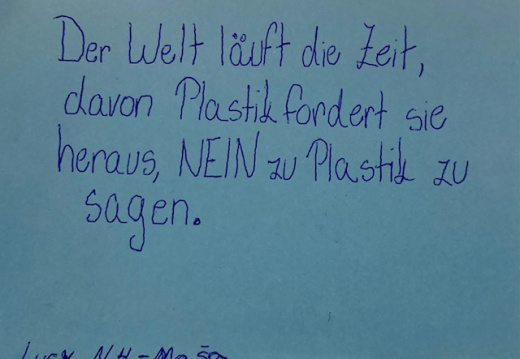 Der Welt läuft die Zeit,
davon Plastik fordert sie
heraus, NEIN zu Plastik zu
sagen.